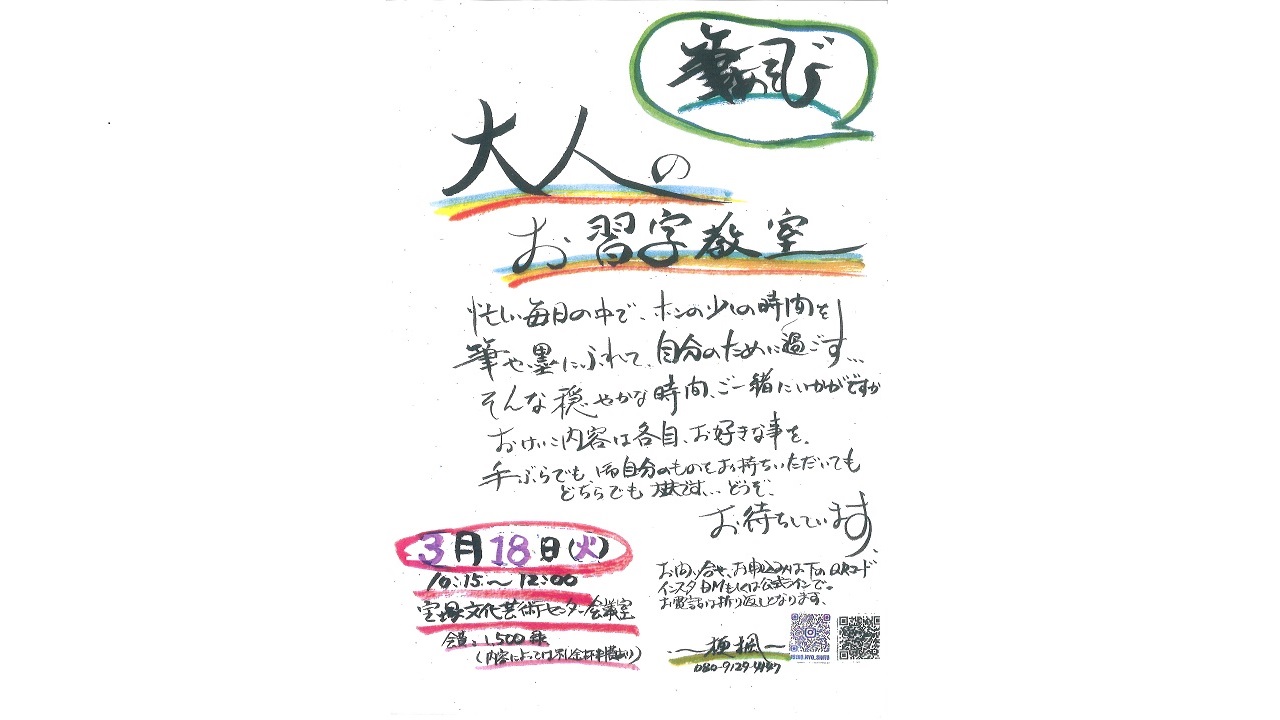 筆あそび
大人の
お習字教室
忙しい毎日の中で、ホンの少しの時間を
筆や墨にふれて、自分のために過ごす…
そんな穏やかな時間、ご一緒にいかがですか
おけいこ内容は各自、お好きな事を。
手ぶらでも、御自分のものをお持ちいただいても
どちらでも大丈夫です… どうぞ、
お待ちしています。
3月18日(火)
10:15〜12:00
宝塚文化芸術センター会議室
会費:1,500
(内容によっては
お問い合せや、お申込みは下のQRコード
インスタDMもしくは公式ラインで。
お電話は折り返しとなります。
080-9129-4487